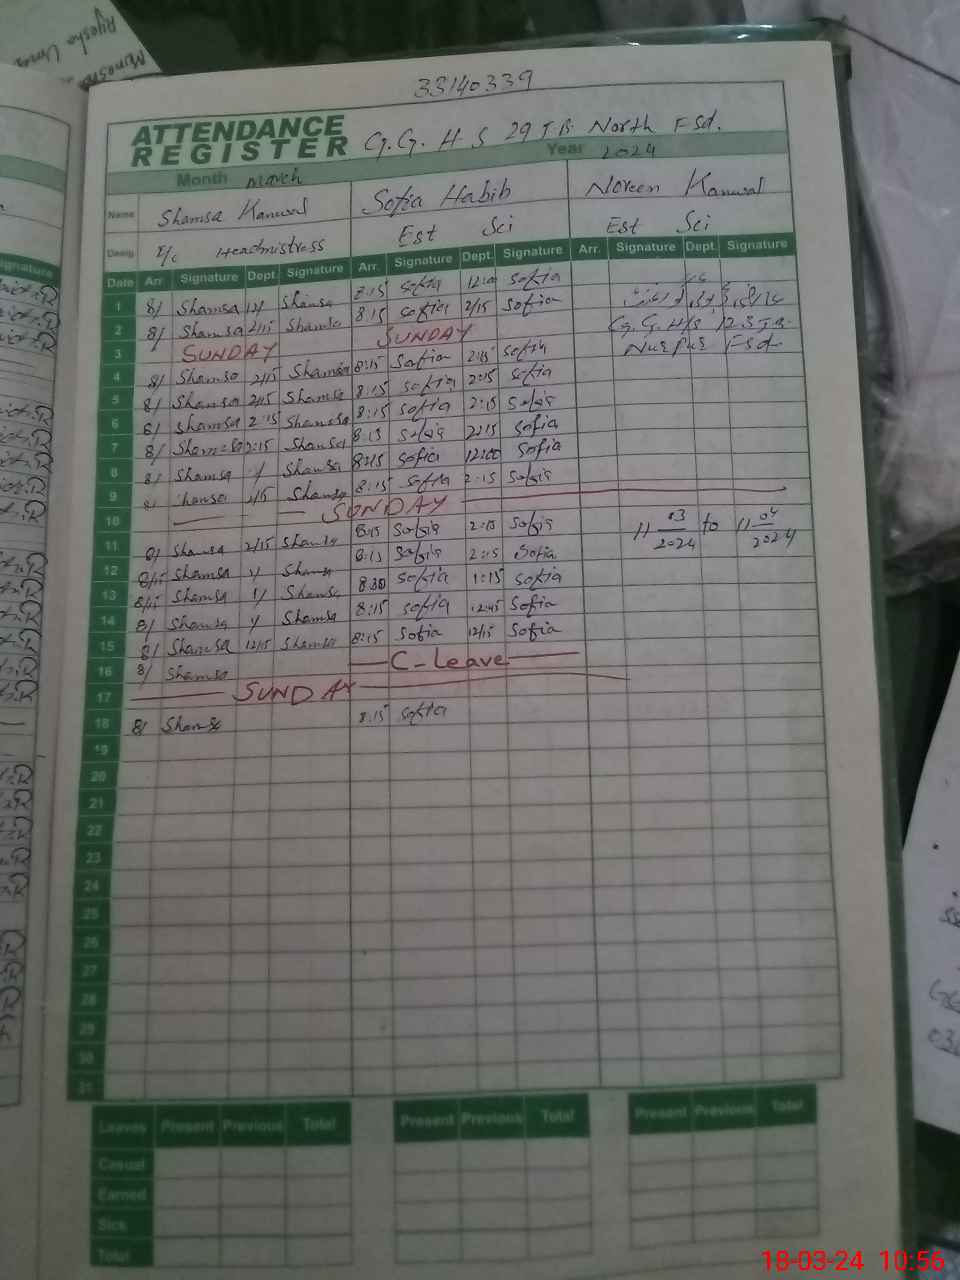 Ayesha Uma
33140339
ATTENDANCE REGISTER G.G. H S 29 J.B. North Fsd.
Month March Year 2024
Name Shamsa Kanwal Sofia Habib Noreen Kanwal
Desig I/c Headmistress Est Sci Est Sci
Date Arr Signature Dept. Signature Arr. Signature Dept. Signature Arr. Signature Dept. Signature
1 8/ Shamsa 12/ Shamsa 8:15 Sofia 12:00 Sofia
2 8/ Shamsa 2/15 Shamsa 8:15 Sofia 2/15 Sofia G.G. H/S
3 SUNDAY SUNDAY Fsd.
4 8/ Shamsa 2/15 Shamsa 8:15 Sofia 2:15 Sofia
5 8/ Shamsa 2/15 Shamsa 8:15 Sofia 2:15 Sofia
6 8/ Shamsa 2:15 Shamsa 8:15 Sofia 2:15 Sofia
7 8/ Shamsa 2:15 Shamsa 8:15 Sofia 2:15 Sofia
8 8/ Shamsa Shamsa 8:15 Sofia 12:00 Sofia
9 8/ Shamsa 2/15 Shamsa 8:15 Sofia 2:15 Sofia
10 SUNDAY
11 8/ Shamsa 2/15 Shamsa 8:15 Sofia 2:15 Sofia 11 03/2024 to 11 04/2024
12 8/15 Shamsa Shamsa 8:15 Sofia 2:15 Sofia
13 8/15 Shamsa Shamsa 8:30 Sofia 1:15 Sofia
14 8/ Shamsa Shamsa 8:15 Sofia 12:45 Sofia
15 8/ Shamsa 12/15 Shamsa 8:15 Sofia 12/15 Sofia
16 8/ Shamsa C-Leave
17 SUNDAY
18 8/ Shamsa 8:15 Sofia
19
20
21
22
23
24
25
26
27
28
29
30
31
Leaves Present Previous Total Present Previous Total Present Previous Total
Casual
Earned
Sick
Total
18-03-24 10:56